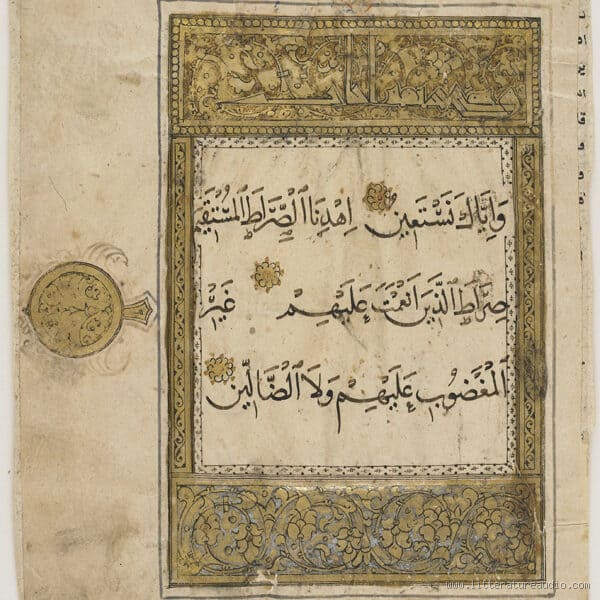 وَإِيَّاكَ نَسْتَعِينُ اهْدِنَا الصِّرَاطَ الْمُسْتَقِيمَ
صِرَاطَ الَّذِينَ أَنْعَمْتَ عَلَيْهِمْ غَيْرِ
الْمَغْضُوبِ عَلَيْهِمْ وَلَا الضَّالِّينَ
www.litteratureaudio.com